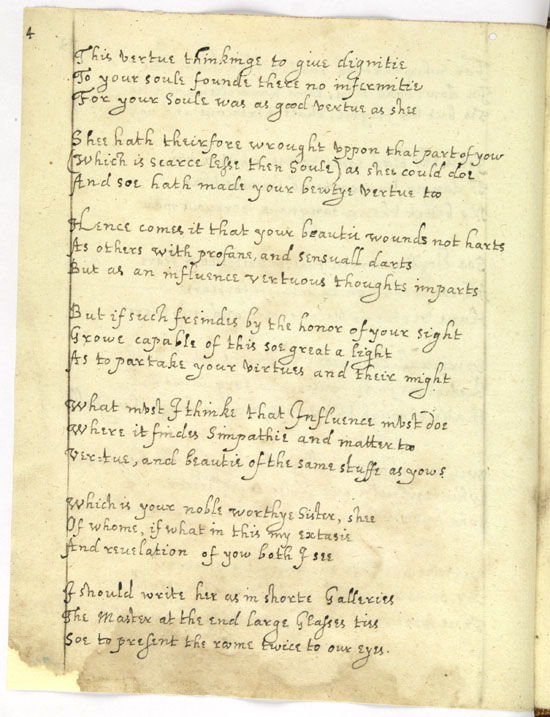 4
This vertue thinkinge to give dignitie
To your soule founde there no infermitie
For your Soule was as good vertue as shee
Shee hath theirfore wrought vppon that part of you
(Which is scarce lesse then Soule) as shee could doe
And soe hath made your bewtye vertue too
Hence comes it that your beautie wounds not harts
As others with profane, and sensuall darts
But as an influence vertuous thoughts imparts
But if such freindes by the honor of your sight
Growe capable of this soe great a light
As to partake your virtues and their might
What must I thinke that Influence must doe
Where it findes Simpathie and matter too
Vertue, and beautie of the same stuffe as yow?
Which is your noble worthye Sister, shee
Of whome, if what in this my extasie
And revelation of yow both I see
I should write her as in shorte Galleries
The Master at the end large Glasses ties
Soe to present the roome twice to our eyes.